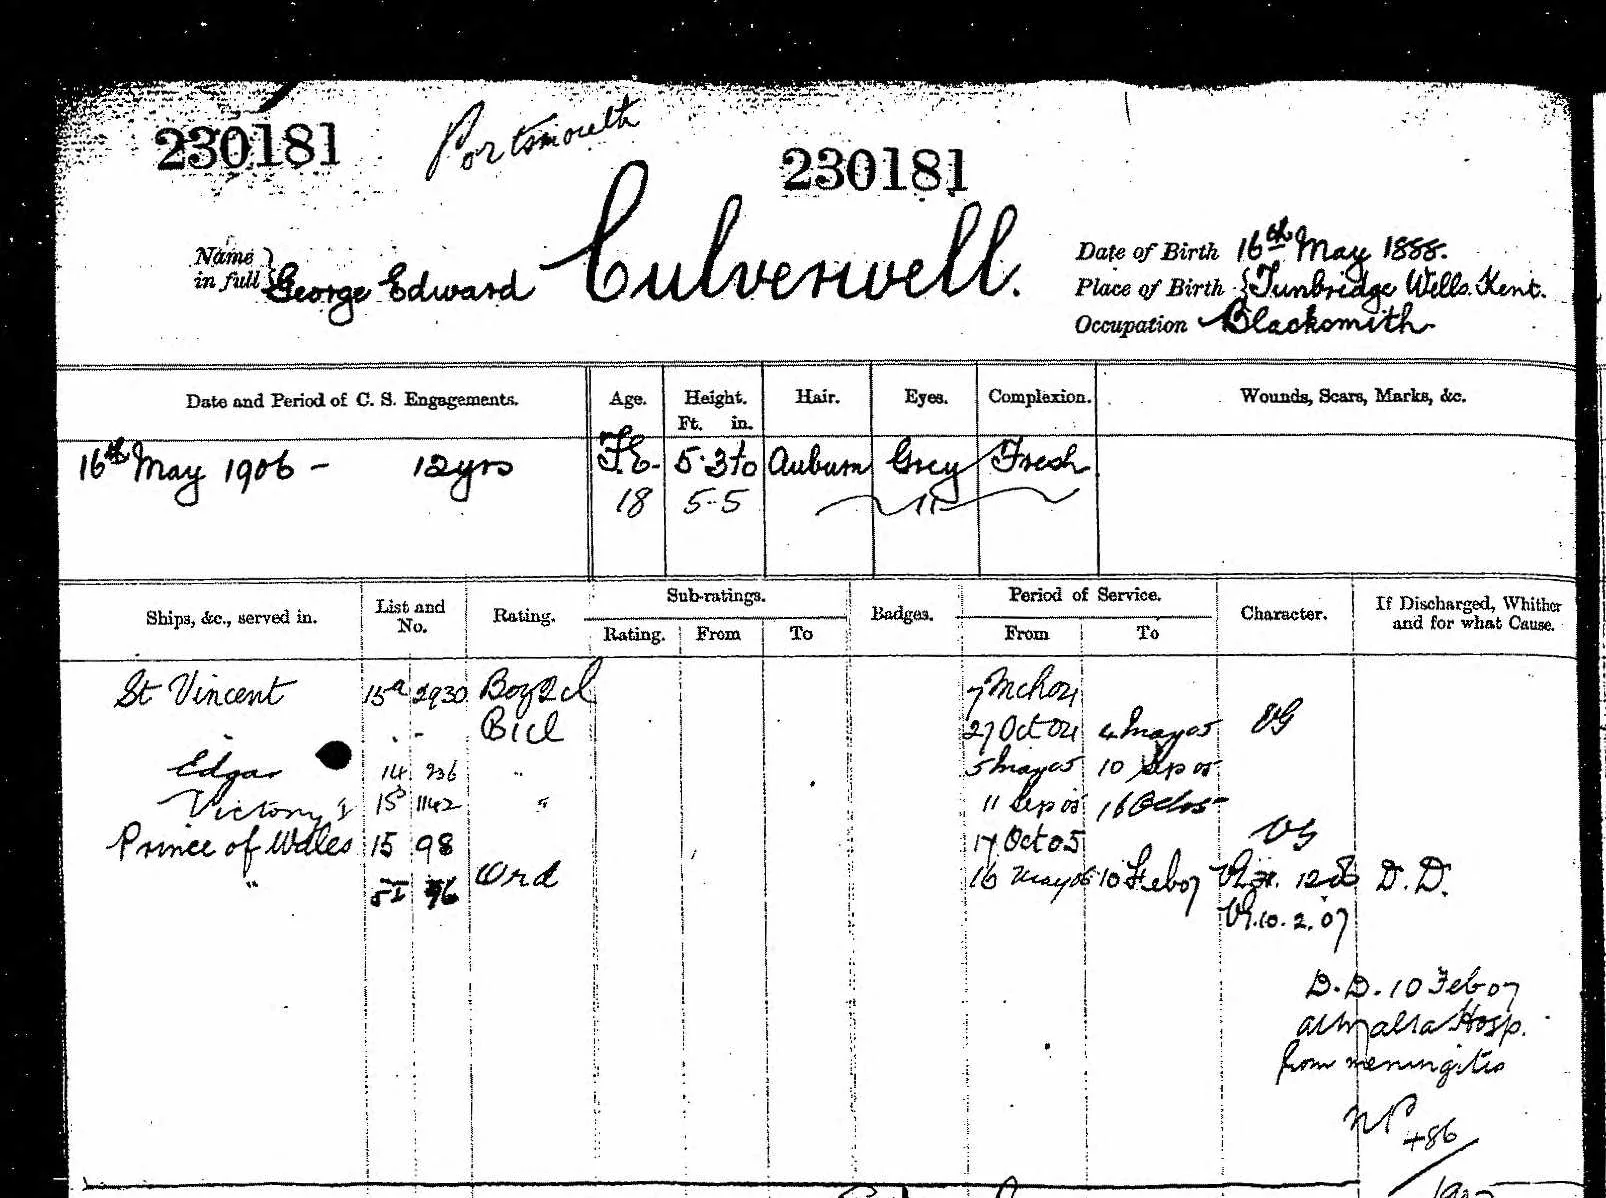 230181 Portsmouth 230181
Name in full George Edward Culverwell.
Date of Birth 16th May 1888.
Place of Birth Tunbridge Wells. Kent.
Occupation Blacksmith
Date and Period of C. S. Engagements. Age. Height. Ft. in. Hair. Eyes. Complexion. Wounds, Scars, Marks, &c.
16th May 1906 - 12 yrs F.E. 5.3 Auburn Grey Fresh
18 5-5 "
Ships, &c., served in. List and No. Rating. Sub-ratings. Rating. From To Badges. Period of Service. From To Character. If Discharged, Whither and for what Cause.
St Vincent 15a 2930 Boy 2cl 7 Mch 04
. - B1cl 27 Oct 04 4 May 05 VG
Edgar 14 236 " 5 May 05 10 Sep 05
Victory I 1142 " 11 Sep 05 16 Oct 05
Prince of Wales 15 98 17 Oct 05 VG
" 5I Ord 16 May 06 10 Feb 07 D.D.
VG.10.2.07
D.D. 10 Feb 07
at Malta Hosp.
from meningitis
NP
486